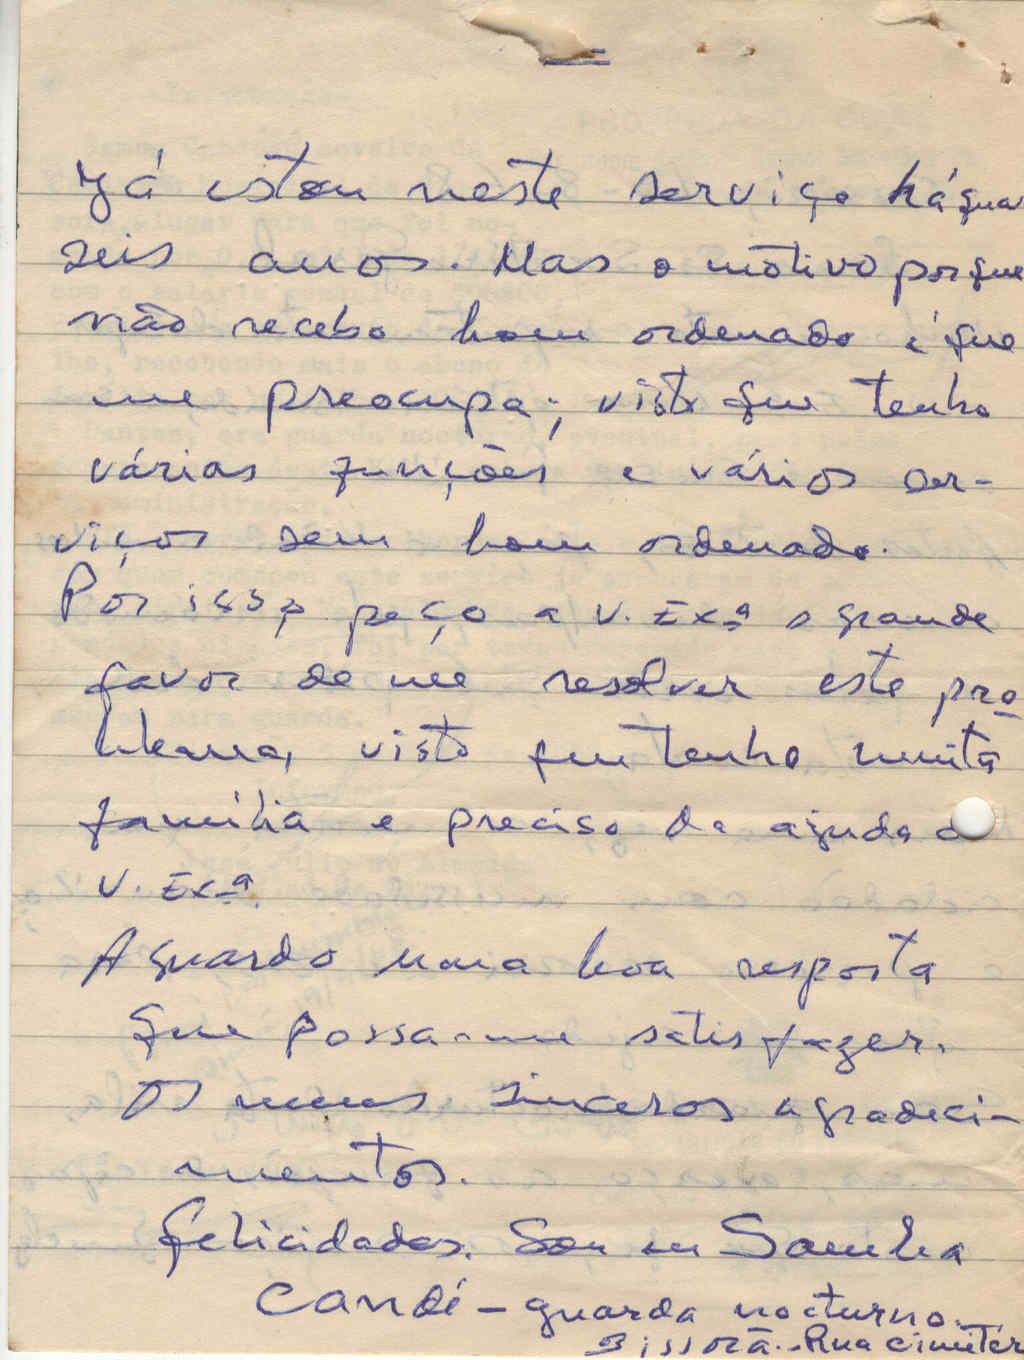 Já estou neste serviço há qua
seis anos. Mas o motivo porque
não recebo bom ordenado é que
me preocupa; visto que tenho
várias funções e vários ser-
viços sem bom ordenado.
Por isso peço a V. Exª o grande
favor de me resolver este pro
blema, visto que tenho muita
família e preciso da ajuda d
V. Exª.
Aguardo uma boa resposta
que possa-me satisfazer.
Os meus sinceros agradeci-
mentos.
Felicidades. Sou eu Samba
Candé - guarda nocturno.
Bissorã. - Rua cimitér